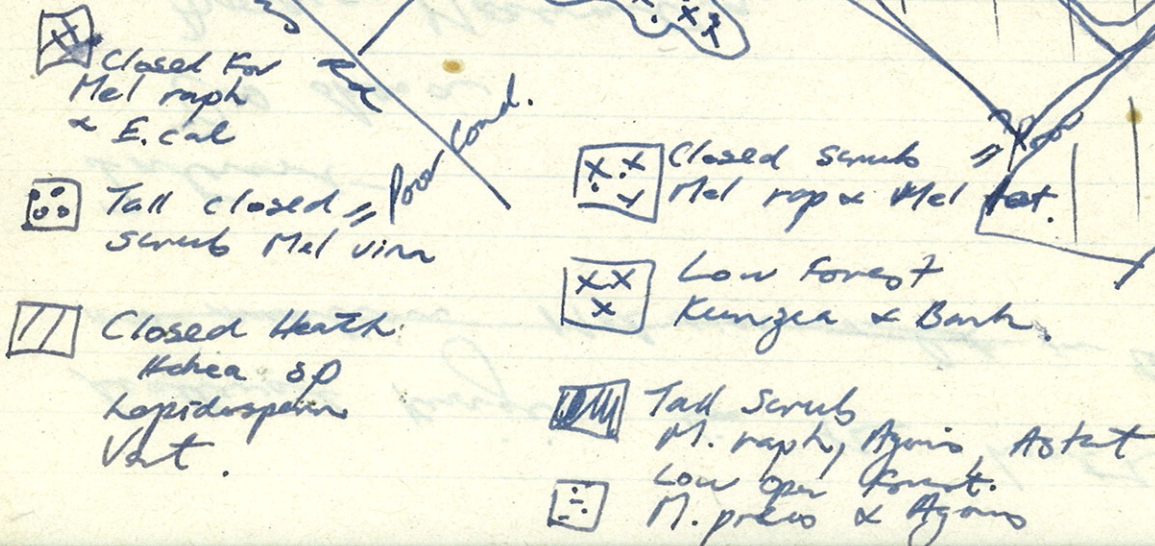 Closed For
Mel raph
& E.cal
Tall closed
Scrub Mel vim
Closed Heath
sp
Lepidosperm
Vert.
Poor Cond.
Closed Scrub
Mel rap & Mel
Low Forest
Kunzea & Bank.
Tall Scrub
M. raph, Agonis, Astart
Low Open Forest.
M. preiss & Agonis